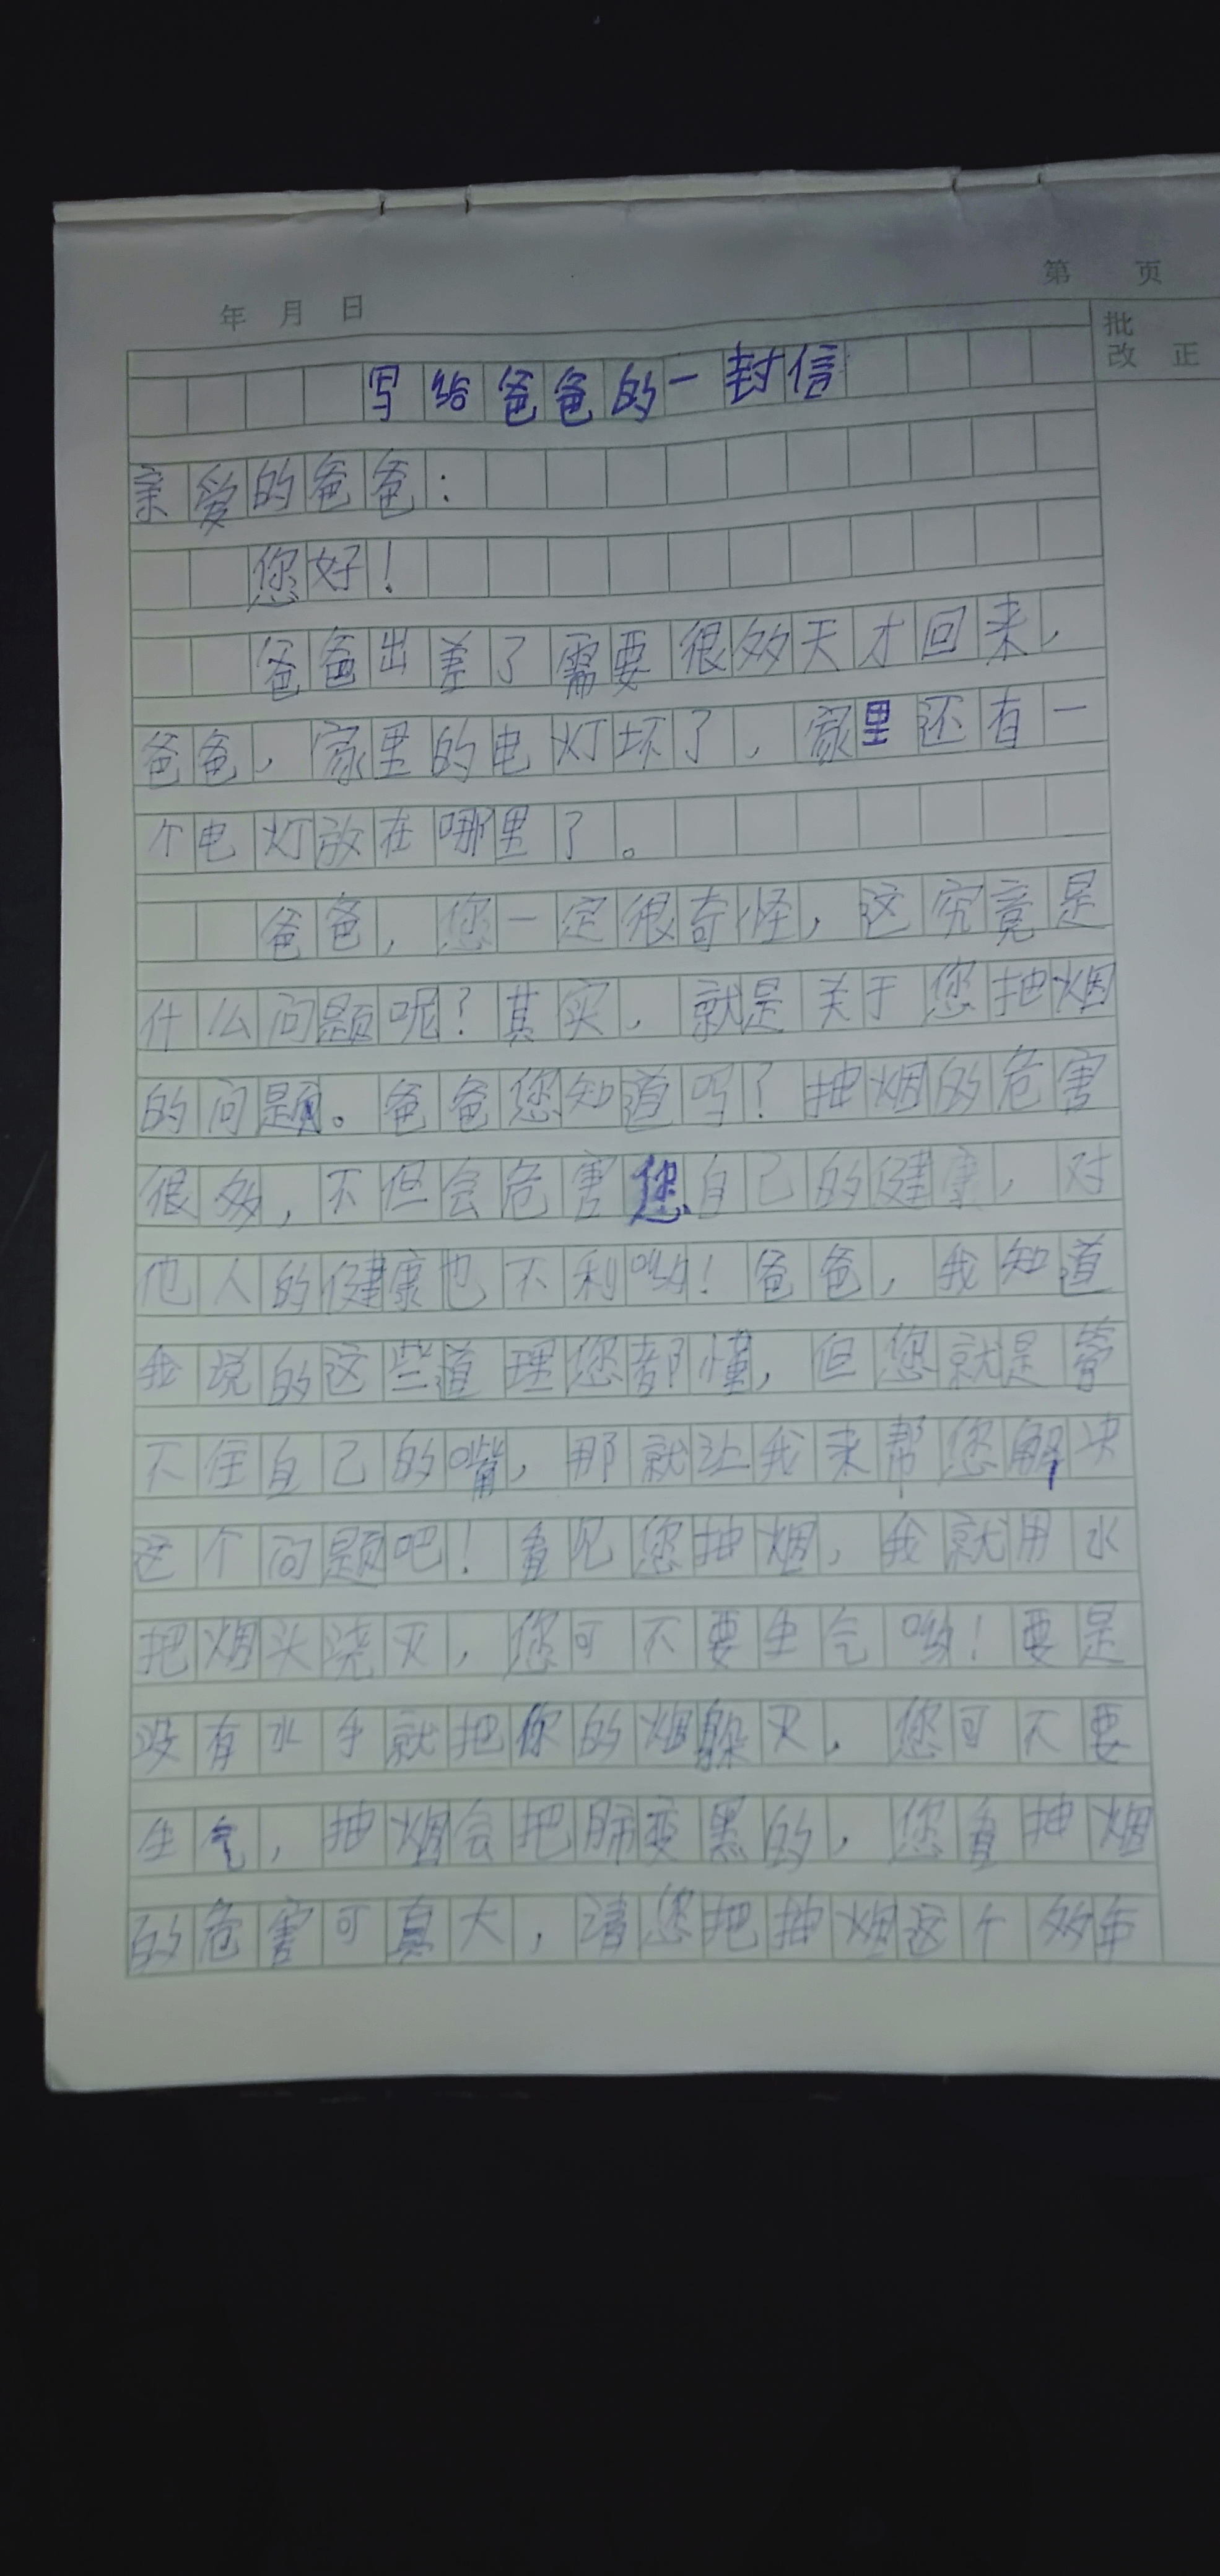 第 页
年 月 日
批
改 正
写给爸爸的一封信
亲爱的爸爸：
您好！
爸爸出差了需要很多天才回来，
爸爸，家里的电灯坏了，家里还有一
个电灯放在哪里了。
爸爸，您一定很奇怪，这究竟是
什么问题呢？其实，就是关于您抽烟
的问题。爸爸您知道吗？抽烟的危害
很多，不但会危害您自己的健康，对
他人的健康也不利哟！爸爸，我知道
我说的这些道理您都懂，但您就是管
不住自己的嘴，那就让我来帮您解决
这个问题吧！看见您抽烟，我就用水
把烟头浇灭，您可不要生气哟！要是
没有水手就把你的烟躲灭，您可不要
生气，抽烟会把肺变黑的，您看抽烟
的危害可真大，请您把抽烟这个多年